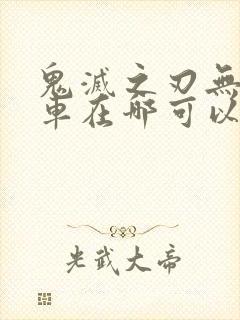 鬼滅之刃無
車在哪可以
光武大帝